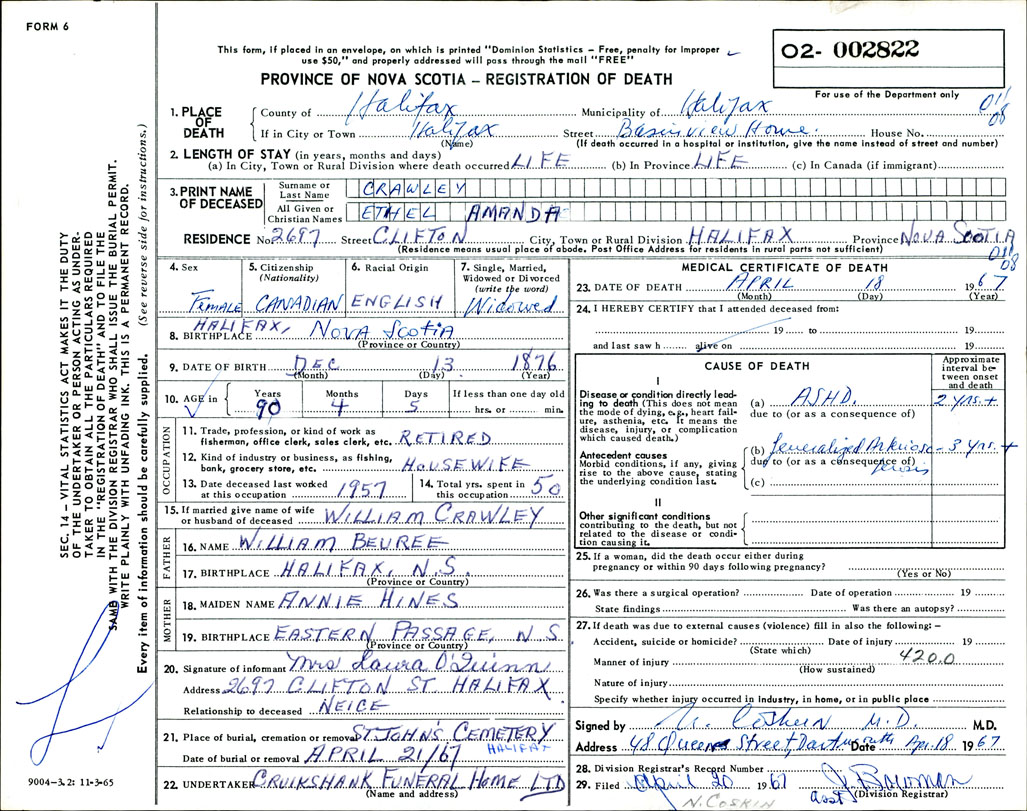 FORM 6
This form, if placed in an envelope, on which is printed "Dominion Statistics – Free, penalty for improper
use $50," and properly addressed will pass through the mail "FREE"
PROVINCE OF NOVA SCOTIA – REGISTRATION OF DEATH
02- 002822
For use of the Department only
011
08
1. PLACE OF DEATH
County of Halifax Municipality of Halifax
If in City or Town Halifax Street Basinview Home. House No.
(Name) (If death occurred in a hospital or institution, give the name instead of street and number)
2. LENGTH OF STAY (in years, months and days)
(a) In City, Town or Rural Division where death occurred LIFE (b) In Province LIFE (c) In Canada (if immigrant)
3. PRINT NAME OF DECEASED
Surname or Last Name CRAWLEY
All Given or Christian Names ETHEL AMANDA
RESIDENCE No. 2697 Street CLIFTON City, Town or Rural Division HALIFAX Province NOVA SCOTIA
(Residence means usual place of abode. Post Office Address for residents in rural parts not sufficient)
011
08
4. Sex Female
5. Citizenship (Nationality) CANADIAN
6. Racial Origin ENGLISH
7. Single, Married, Widowed or Divorced (write the word) Widowed
8. BIRTHPLACE HALIFAX, NOVA SCOTIA
(Province or Country)
9. DATE OF BIRTH DEC 13 1876
(Month) (Day) (Year)
10. AGE in Years Months Days If less than one day old
90 4 5 hrs. or min.
OCCUPATION
11. Trade, profession, or kind of work as
fisherman, office clerk, sales clerk, etc. RETIRED
12. Kind of industry or business, as fishing,
bank, grocery store, etc. HOUSEWIFE
13. Date deceased last worked
at this occupation 1957
14. Total yrs. spent in
this occupation 50
15. If married give name of wife
or husband of deceased WILLIAM CRAWLEY
FATHER
16. NAME WILLIAM BEUREE
17. BIRTHPLACE HALIFAX, N.S.
(Province or Country)
MOTHER
18. MAIDEN NAME ANNIE HINES
19. BIRTHPLACE EASTERN PASSAGE, N.S.
(Province or Country)
20. Signature of informant Mrs Laura O'Quinn
Address 2697 CLIFTON ST HALIFAX
Relationship to deceased NEICE
21. Place of burial, cremation or removal ST. JOHN'S CEMETERY
HALIFAX
Date of burial or removal APRIL 21/67
22. UNDERTAKER CRUIKSHANK FUNERAL HOME LTD
(Name and address)
MEDICAL CERTIFICATE OF DEATH
23. DATE OF DEATH APRIL 18 1967
(Month) (Day) (Year)
24. I HEREBY CERTIFY that I attended deceased from:
19 to 19
and last saw h alive on 19
CAUSE OF DEATH
Approximate interval between onset and death
I
Disease or condition directly leading to death (This does not mean
the mode of dying, e.g., heart failure, asthenia, etc. It means the
disease, injury, or complication
which caused death.)
(a) ASHD. 2 yrs. +
due to (or as a consequence of)
Antecedent causes
Morbid conditions, if any, giving
rise to the above cause, stating
the underlying condition last.
(b) Generalized Arteriosclerosis 3 yrs. +
due to (or as a consequence of)
(c)
II
Other significant conditions
contributing to the death, but not
related to the disease or condition causing it.
25. If a woman, did the death occur either during
pregnancy or within 90 days following pregnancy?
(Yes or No)
26. Was there a surgical operation? Date of operation 19
State findings Was there an autopsy?
27. If death was due to external causes (violence) fill in also the following:–
Accident, suicide or homicide? Date of injury 19
(State which) 420.0
Manner of injury
(How sustained)
Nature of injury
Specify whether injury occurred in industry, in home, or in public place
Signed by M.D. M.D.
Address 48 Queen Street, Dartmouth Date Apr. 18 1967
28. Division Registrar's Record Number
29. Filed April 20 1967
asst (Division Registrar)
N. COSKIN
SEC. 14 – VITAL STATISTICS ACT MAKES IT THE DUTY
OF THE UNDERTAKER OR PERSON ACTING AS UNDER-
TAKER TO OBTAIN ALL THE PARTICULARS REQUIRED
IN THE "REGISTRATION OF DEATH" AND TO FILE THE
SAME WITH THE DIVISION REGISTRAR WHO SHALL ISSUE THE BURIAL PERMIT.
WRITE PLAINLY WITH UNFADING INK. THIS IS A PERMANENT RECORD.
Every item of information should be carefully supplied. (See reverse side for instructions.)
9004-3.2: 11-3-65